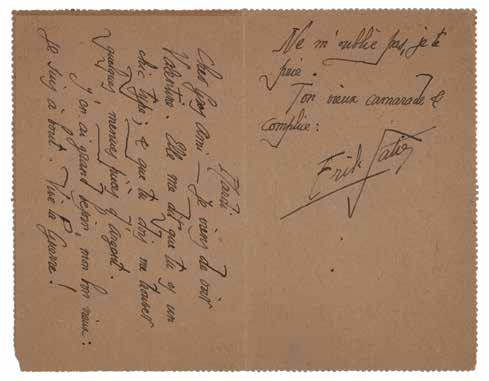 Mardi
Cher Gros Ami — Je viens de voir
Valentine. Elle m'a dit que tu es un
chic type, & que tu dois me trouver
quelques menues pièces d'argent.
J'en ai grand besoin, mon bon vieux :
je suis à bout. Vive la Guerre !
Ne m'oublie pas, je te
prie.
Ton vieux camarade &
complice :
Erik Satie